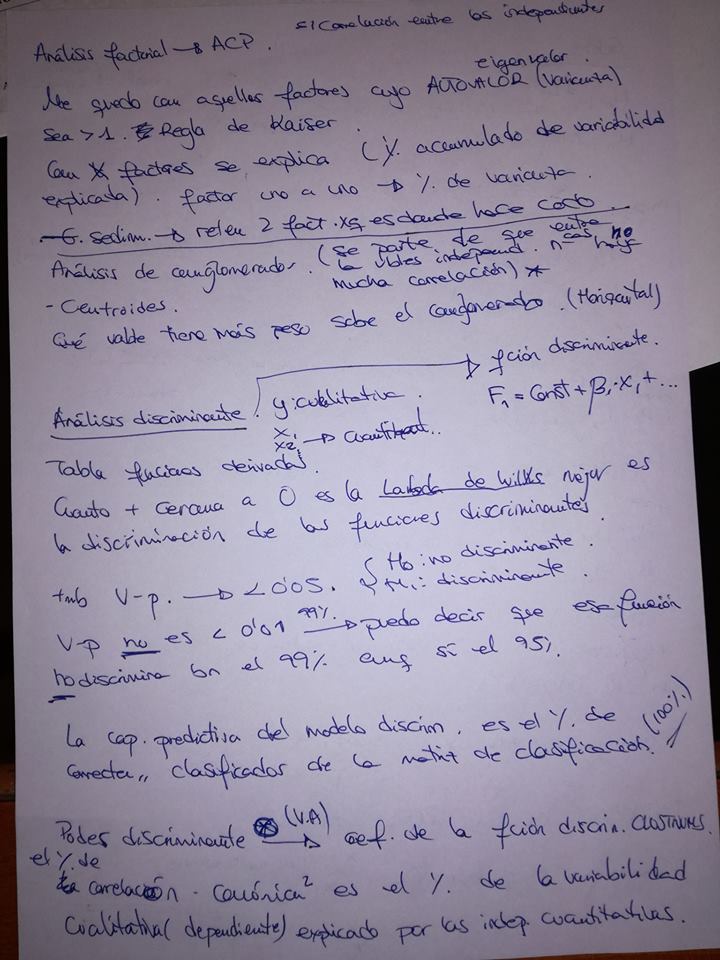 Análisis factorial → ACP. sí Correlación entre las independientes
eigenvalor
Me quedo con aquellos factores cuyo AUTOVALOR (varianza)
sea >1. Regla de Kaiser.
Con X factores se explica (% acumulado de variabilidad
explicada). factor uno a uno → % de varianza.
G. sedim. → reten 2 fact. xq es donde hace codo.
Análisis de conglomerados. (se parte de que entre
las vbles independ. no haya
mucha correlación) *
- Centroides.
Qué vable tiene más peso sobre el conglomerado. (Horizontal)
fción discriminante.
Análisis discriminante. y: cualitativa.
F₁ = Const + β₁·X₁ + ...
X₁
X₂ → cuantitat..
Tabla funcions derivadas.
Cuanto + cercana a 0 es la Lambda de Wilks mejor es
la discriminación de las funciones discriminantes.
tmb V-p. → < 0'05. { H₀: no discriminante.
H₁: discriminante.
V-p no es < 0'01 99% → puedo decir que esa función
no discrimina en el 99% aunq sí el 95%.
La cap. predictiva del modelo discrim. es el % de (100%)
correcta,, clasificados de la matriz de clasificación.
Poder discriminante (V.A) → coef. de la fción discrim.
el % de
la correlación canónica² es el % de la variabilidad
Cualitativa (dependiente) explicado por las indep. cuantitativas.